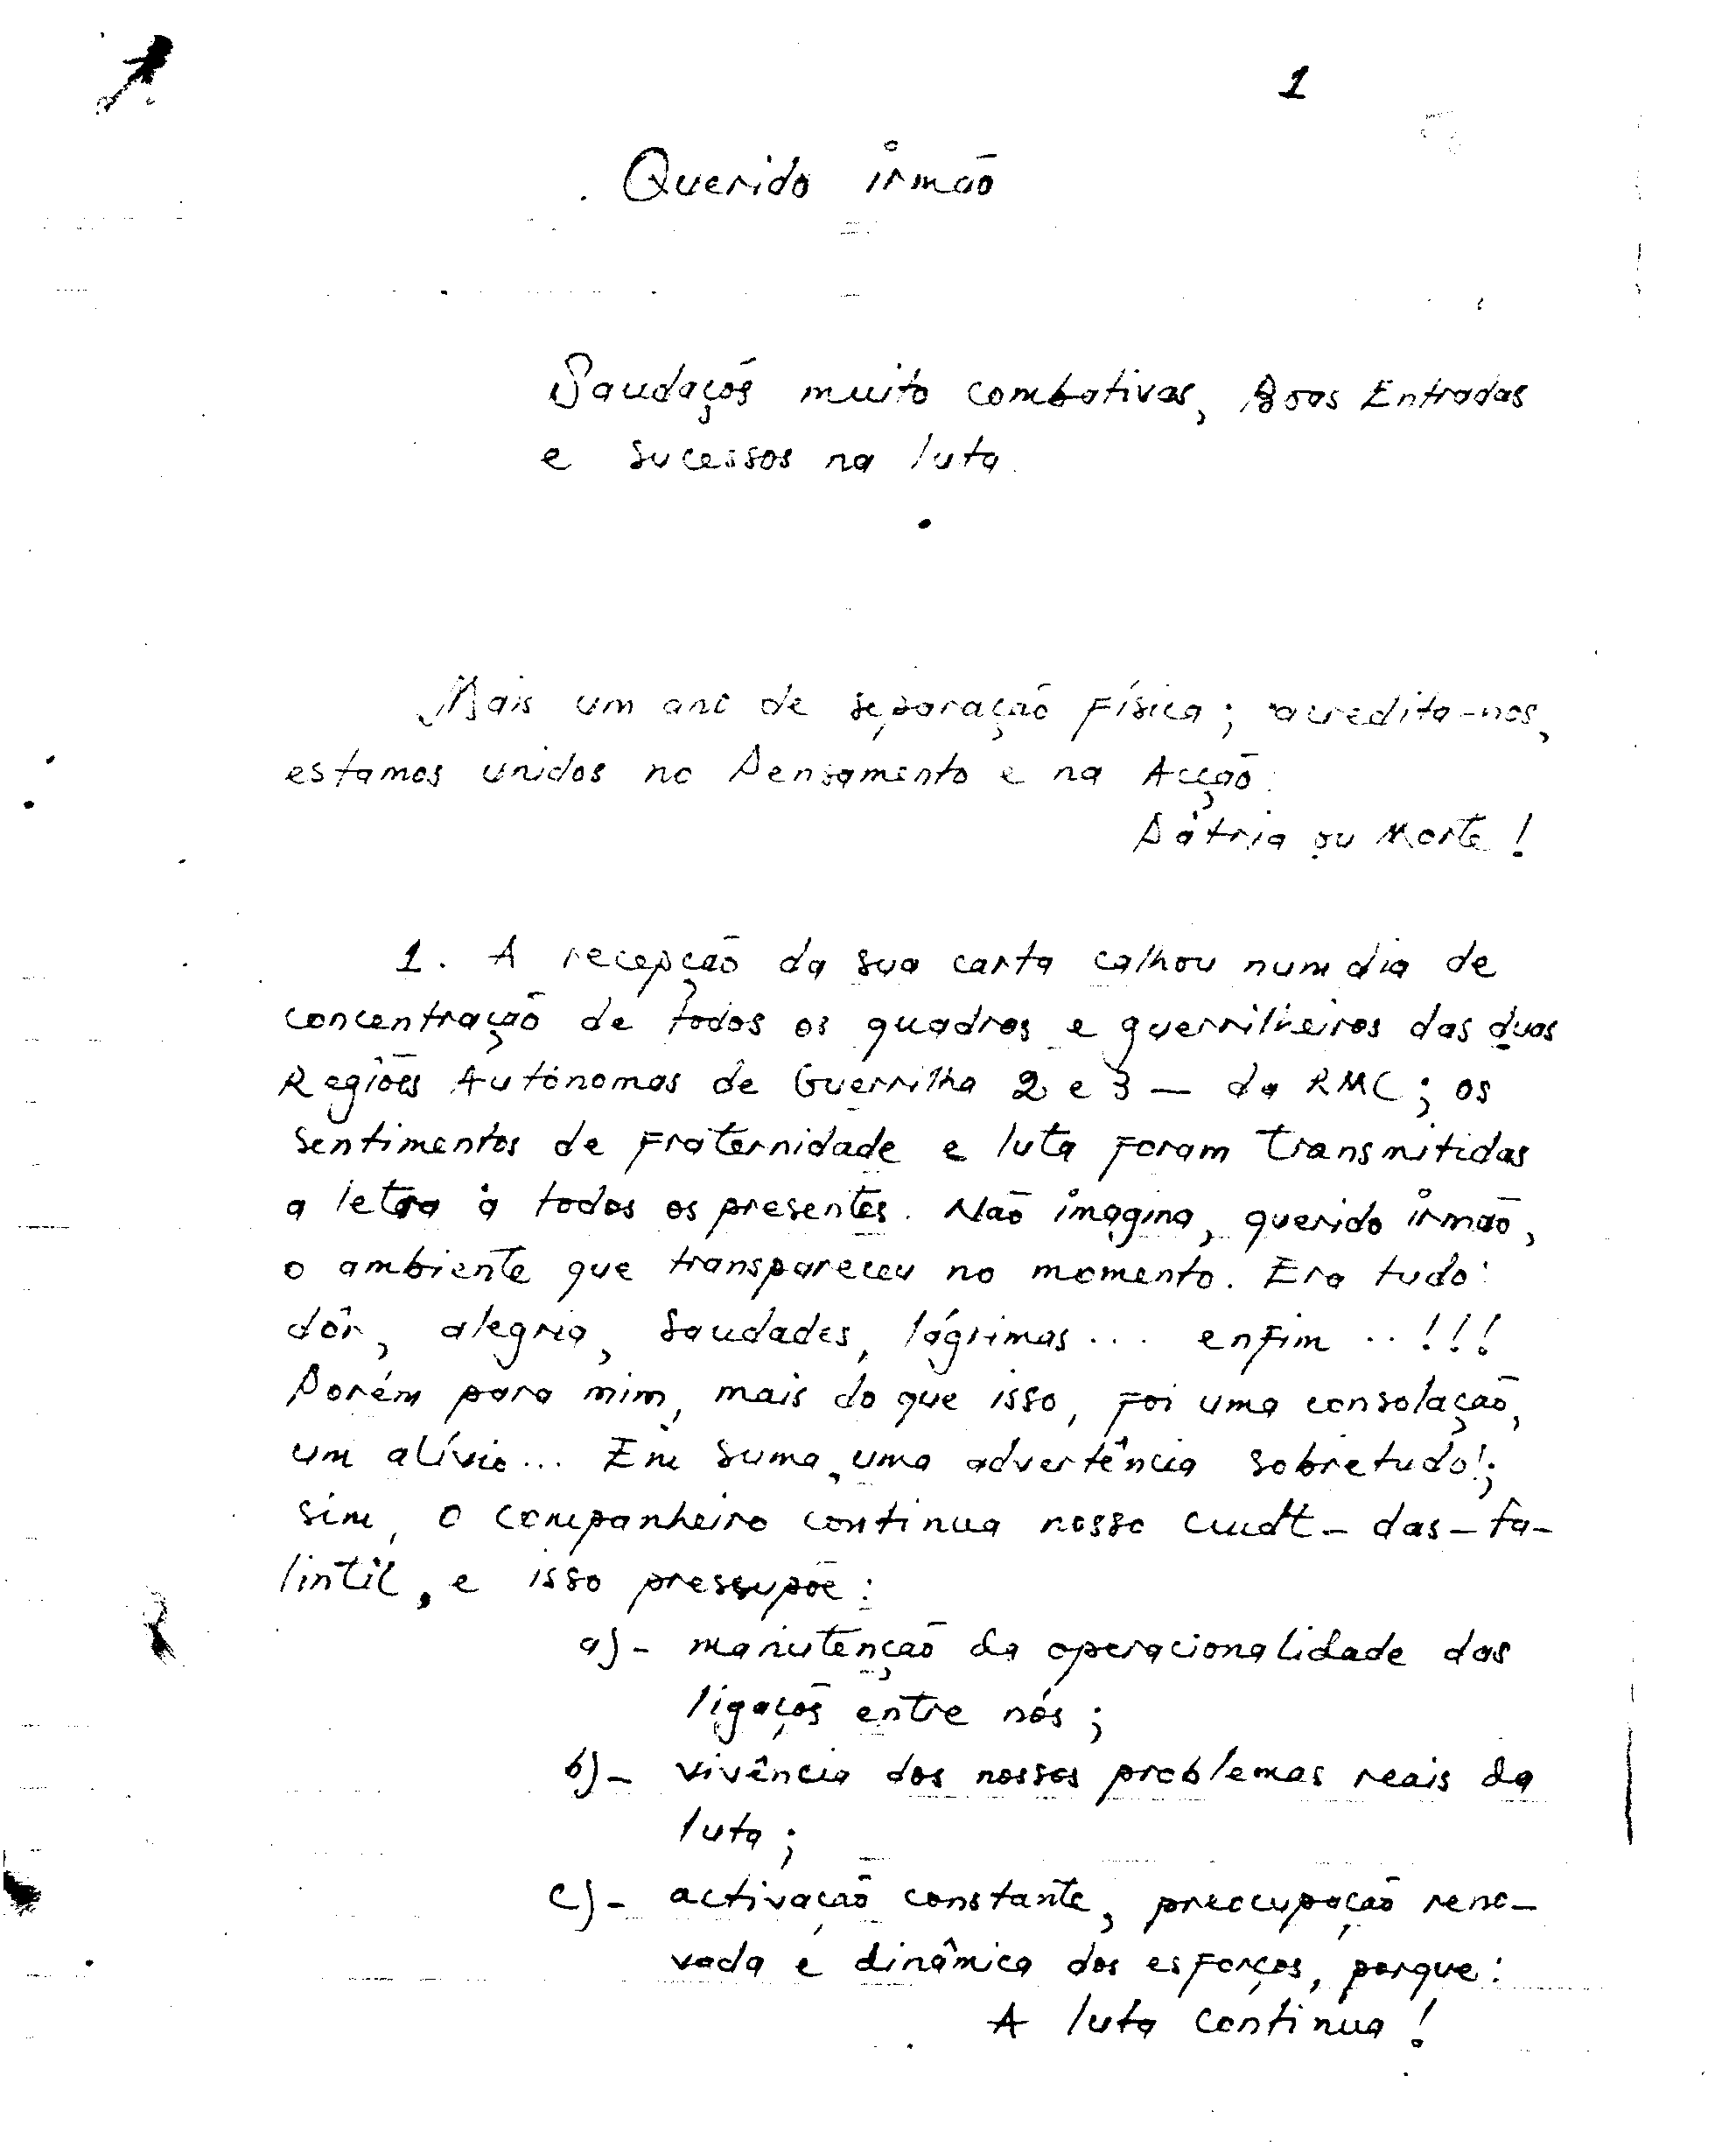 1
Querido irmão
Saudaçõs muito combativas, Boas Entradas
e sucessos na luta.
Mais um ano de separação física; acredita-nos,
estamos unidos no Pensamento e na Acção.
Pátria ou Morte!
1. A recepção da sua carta calhou num dia de
concentração de todos os quadros e guerrilheiros das duas
Regiões Autónomas de Guerrilha 2 e 3 — da RMC; os
sentimentos de fraternidade e luta foram transmitidas
a letra à todos os presentes. Não imagina, querido irmão,
o ambiente que transpareceu no momento. Era tudo:
dôr, alegria, saudades, lágrimas... enfim ..!!!
Porém para mim, mais do que isso, foi uma consolação,
um alívio... Em suma, uma advertência sobretudo!;
sim, o companheiro continua nosso cmdt-das-fa-
lintil, e isso pressupõe:
a)- manutenção da operacionalidade das
ligaçõs entre nós;
b)- vivência dos nossos problemas reais da
luta;
c)- activação constante, preocupação reno-
vada e dinâmica dos esforços, porque:
A luta continua!